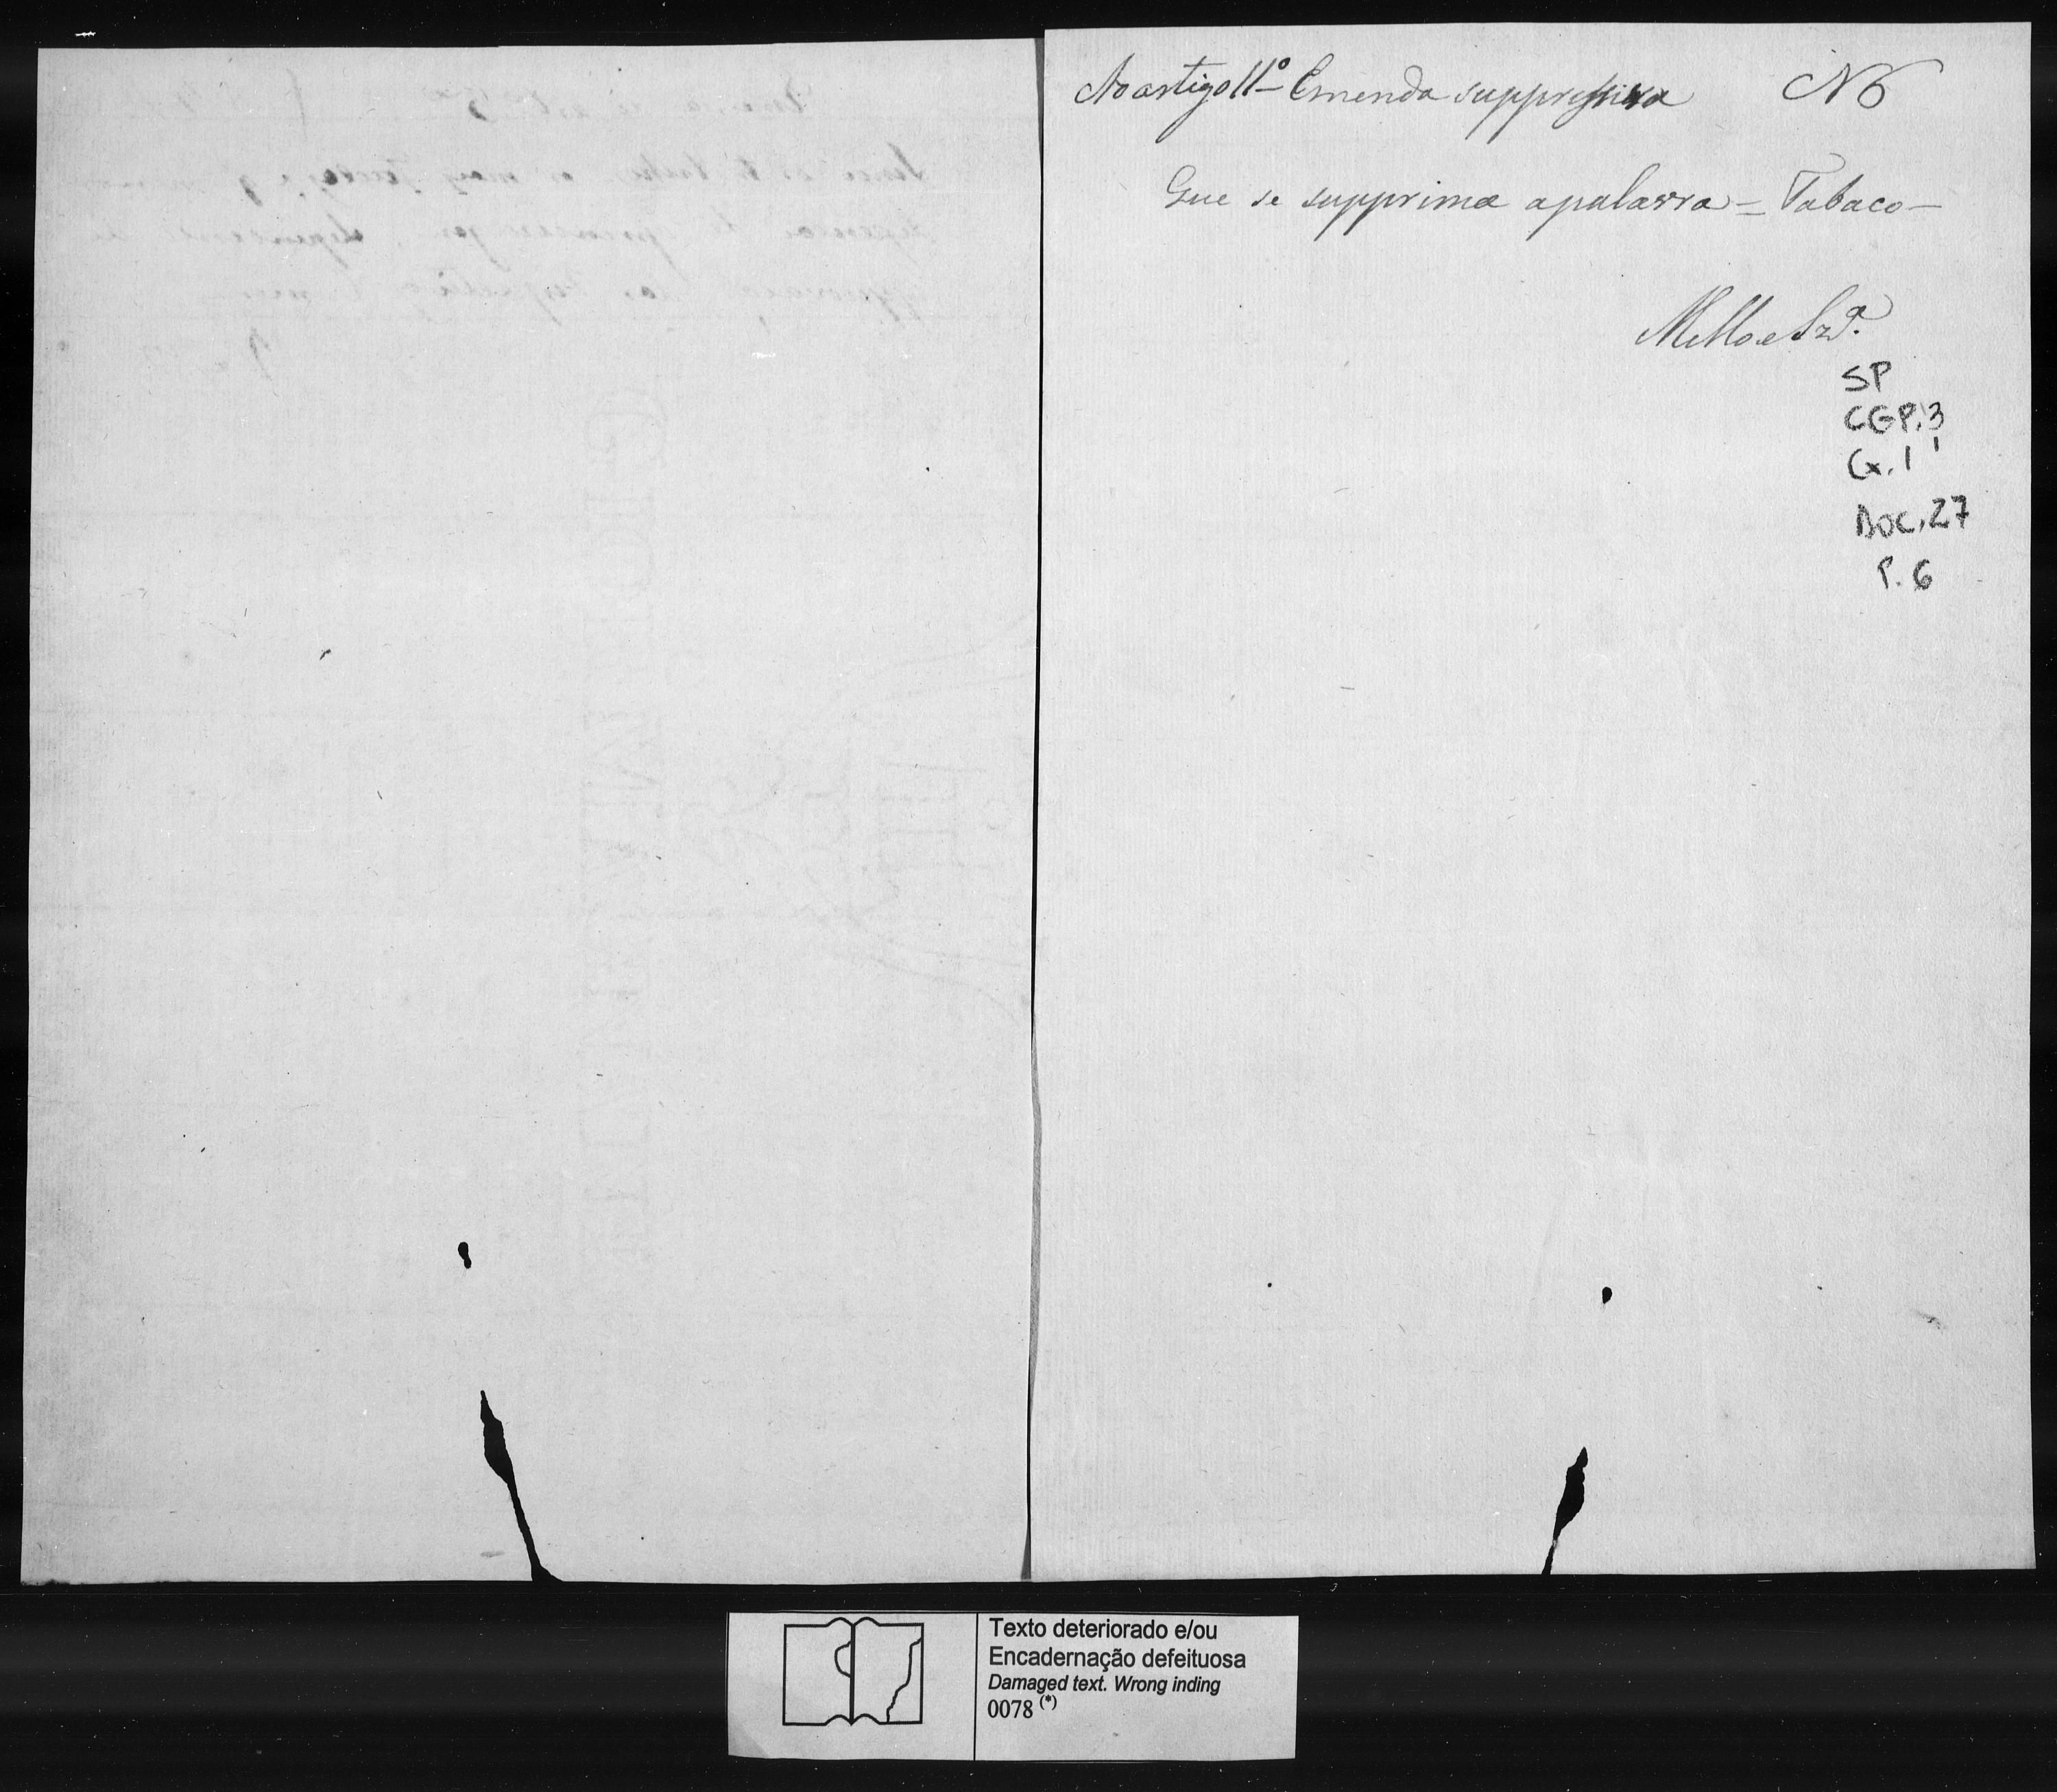 Ao artigo 11º - Emenda suppressiva N 6
Que se supprima a palavra = Tabaco -
Mello e Sza.
SP
CGP.3
Cx. 1
DOC. 27
P. 6
Texto deteriorado e/ou
Encadernação defeituosa
Damaged text. Wrong inding
0078 (*)